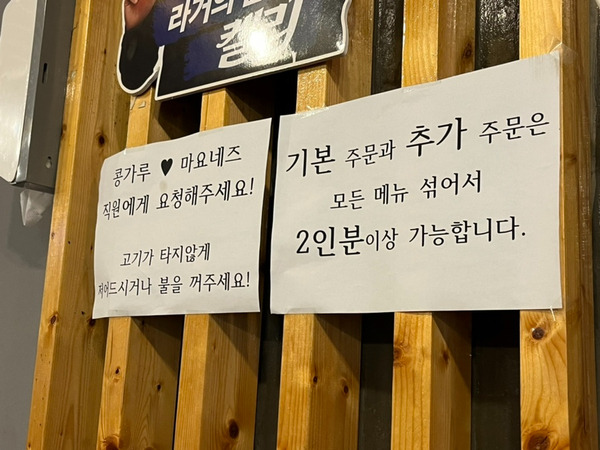 라거의
켈리
콩가루 ♥ 마요네즈
직원에게 요청해주세요!
고기가 타지않게
저어드시거나 불을 꺼주세요!
기본 주문과 추가 주문은
모든 메뉴 섞어서
2인분이상 가능합니다.